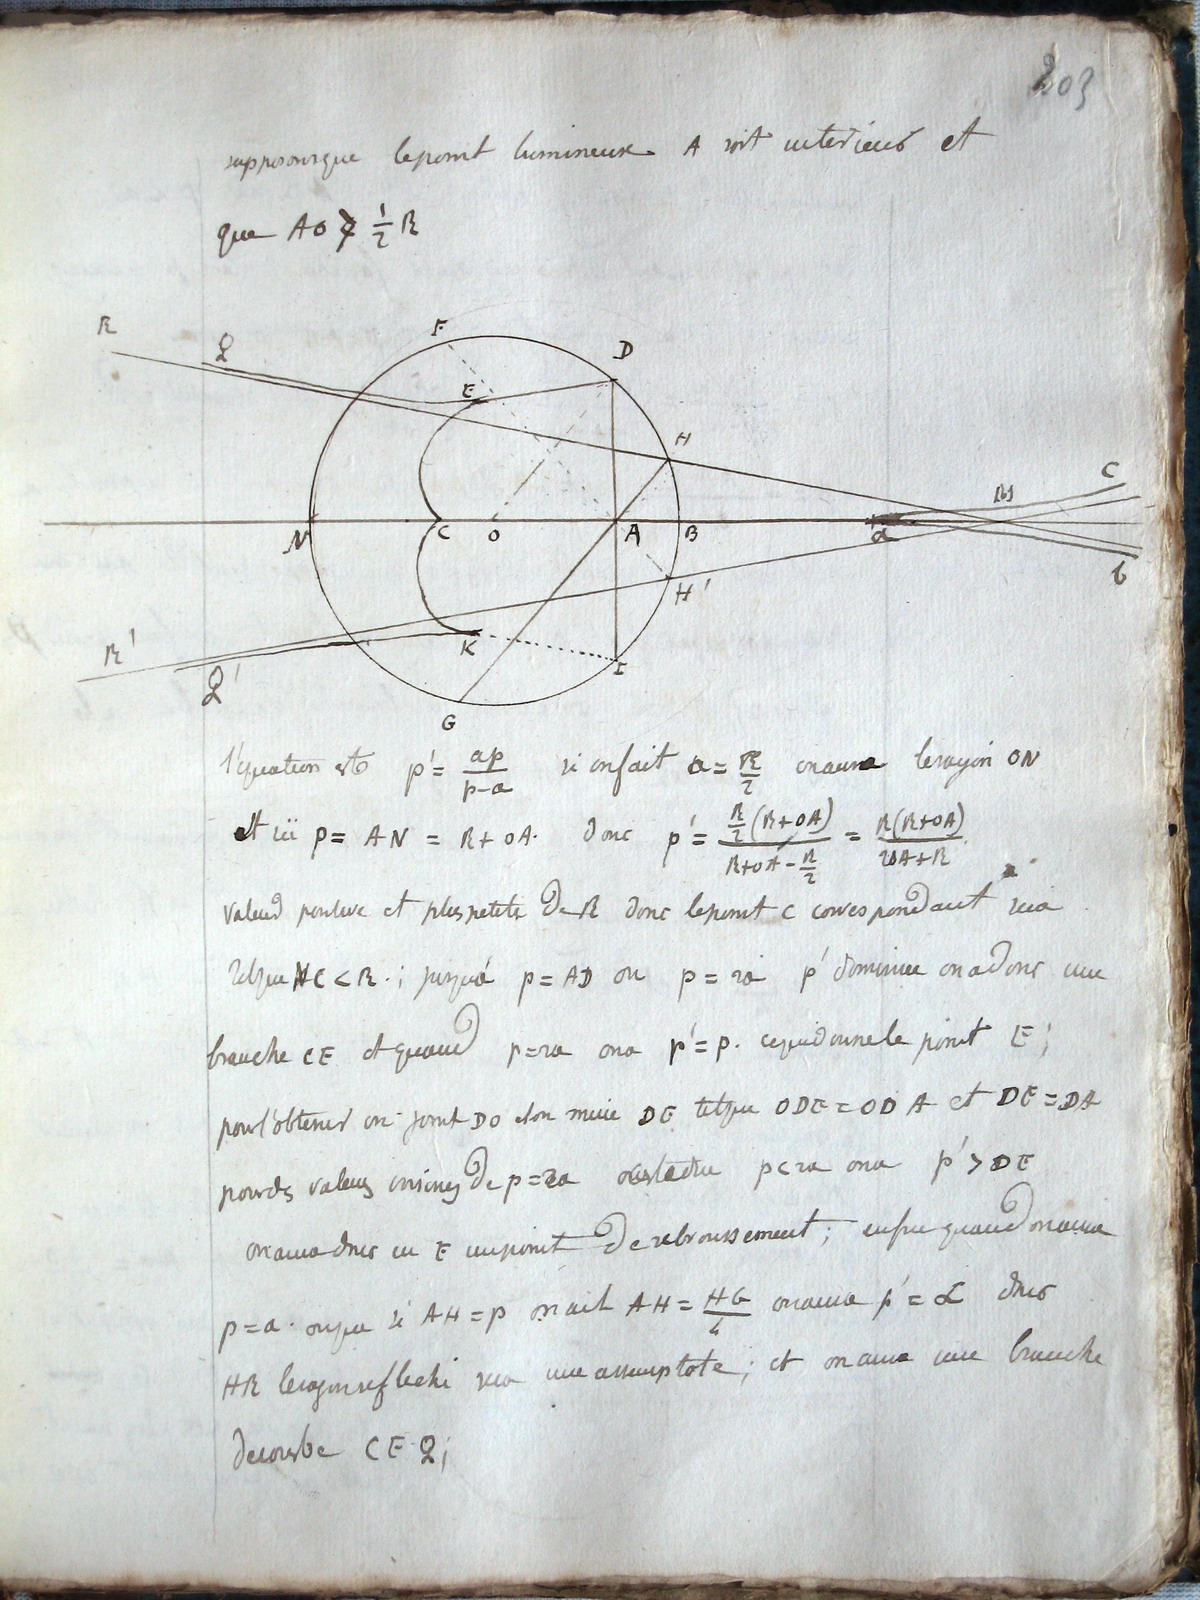 203
supposons que le point lumineux A soit interieur et
que AO > 1/2 R
R Q F D
E H
M C
N C O A B α
H' b
K I
R' Q'
G
l'equation est p' = ap/p-a si on fait a = R/2 on aura le rayon ON
et ici p = AN = R+OA. donc p' = R/2(R+OA)/R+OA-R/2 = R(R+OA)/2OA+R
valeur positive et plus petite de R donc le point C correspondant sera
tel que NC < R.; jusqu'à p = AD ou p = 2a p' diminue on a donc une
branche CE et quand p=2a on a p' = p. ce qui donne le point E;
pour l'obtenir on joint DO et on mene DE tel que ODE = ODA et DE = DA
pour des valeurs voisines de p=2a p<2a on a p' > DE
on aura donc en E un point de rebroussement; enfin quand on aura
p=a. ou que si AH = p on ait AH = HG/4 on aura p' = α donc
HR le rayon reflechi sera une assumptote; et on aura une branche
de courbe CEQ;